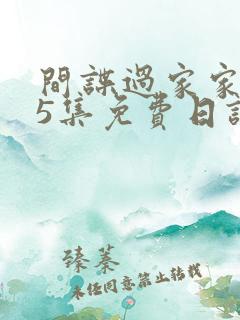 間諜過家家
5集免費日語
臻蓁
未经同意禁止转载